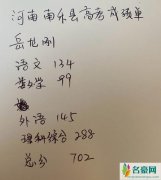 河南南乐县高考成绩单
岳龙刚
语文 134
数学 99
外语 145
理科综合 288
总分 702
名豪网